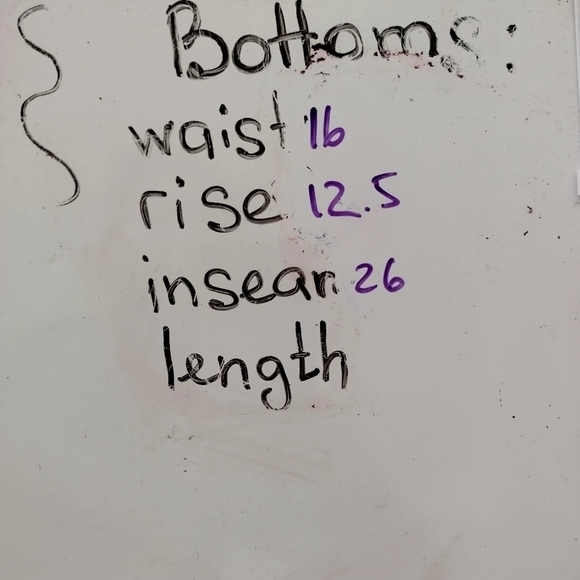 Bottoms:
waist 16
rise 12.5
insean 26
length